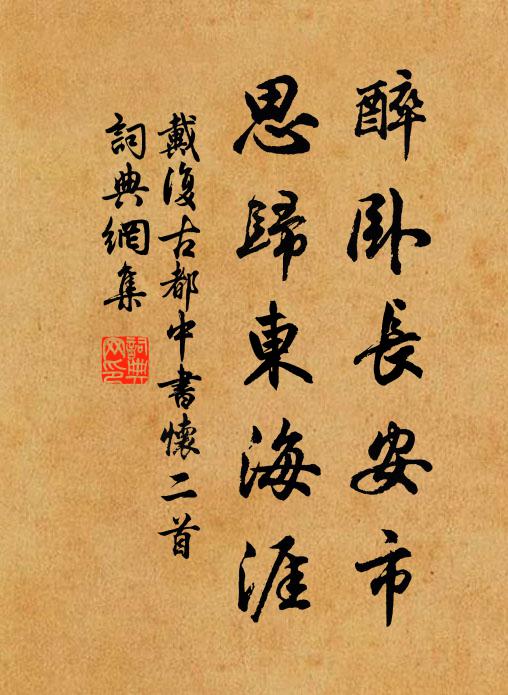 醉卧長安市
思歸東海涯
戴復古都中書懷二首
詞典網集
詞典网印